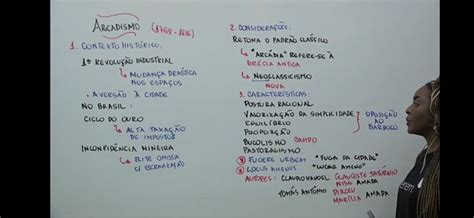 ARCADISMO (1768 - 1836)
1. CONTEXTO HISTÓRICO:
1ª REVOLUÇÃO INDUSTRIAL
↳ MUDANÇA DRÁSTICA
NOS ESPAÇOS
- AVERSÃO À CIDADE
NO BRASIL:
CICLO DO OURO
↳ ALTA TAXAÇÃO
DE IMPOSTOS
INCONFIDÊNCIA MINEIRA
↳ ELITE OMISSA
C/ ESCRAVIZAÇÃO
2. CONSIDERAÇÕES:
RETOMA O PADRÃO CLÁSSICO
↳ "ARCÁDIA" REFERE-SE À
GRÉCIA ANTIGA
↳ NEOCLASSICISMO
NOVA
3. CARACTERÍSTICAS:
POSTURA RACIONAL
VALORIZAÇÃO DA SIMPLICIDADE
EQUILÍBRIO
PROPORÇÃO
OPOSIÇÃO
AO
BARROCO
BUCOLISMO CAMPO
PASTORALISMO
FUGERE URBEM "FUGA DA CIDADE"
LOCUS AMENUS "LUGAR AMENO"
AUTORES: CLAUDIO MANUEL GLAUCESTE SATÚRNIO
NISE AMADA
TOMÁS ANTÔNIO DIRCEU
MARÍLIA AMADA